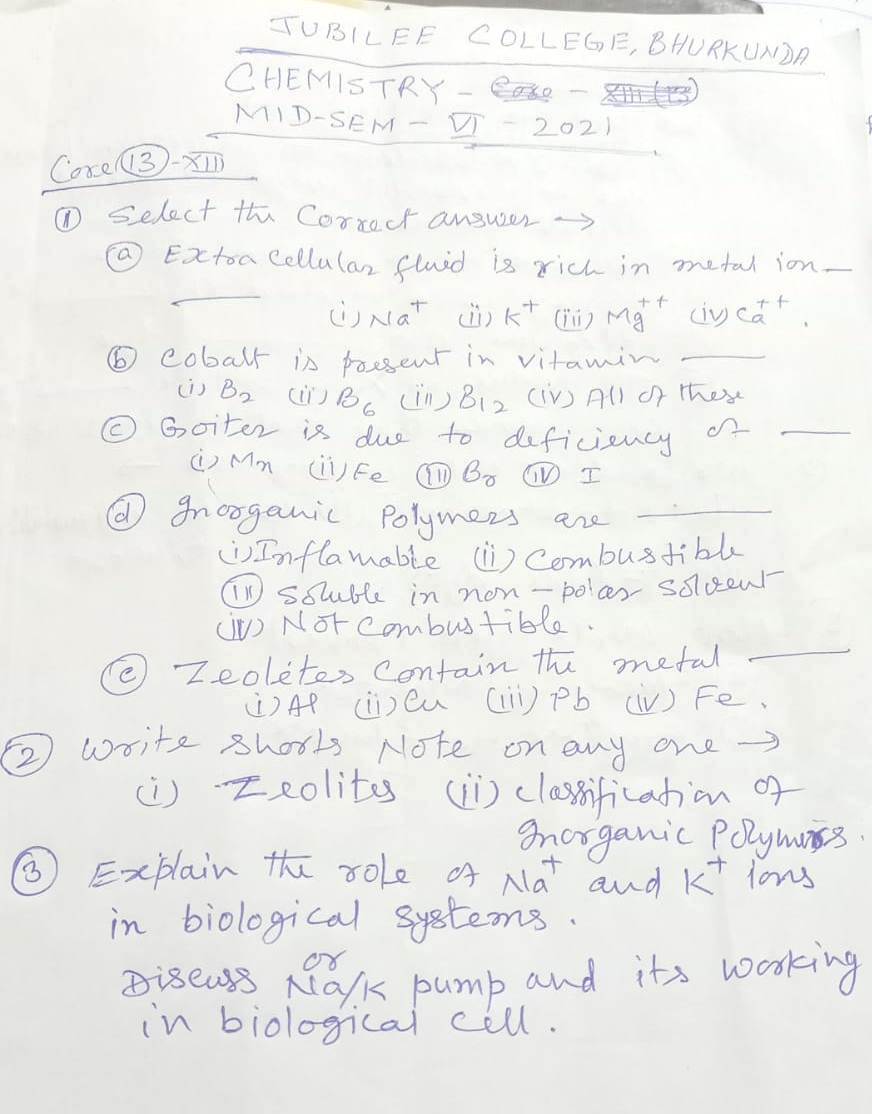 JUBILEE COLLEGE, BHURKUNDA
CHEMISTRY -
MID-SEM - VI - 2021
Core (13) - XIII
① Select the Correct answer →
ⓐ Extra Cellular fluid is rich in metal ion —
(i) Na⁺ (ii) K⁺ (iii) Mg⁺⁺ (iv) Ca⁺⁺.
ⓑ Cobalt is present in vitamin —
(i) B₂ (ii) B₆ (iii) B₁₂ (iv) All of these
ⓒ Goiter is due to deficiency of —
(i) Mn (ii) Fe (iii) Br (iv) I
ⓓ Inorganic Polymers are —
(i) Inflamable (ii) Combustible
(iii) Soluble in non-polar solvent
(iv) Not Combustible.
ⓔ Zeolites Contain the metal —
(i) Al (ii) Cu (iii) Pb (iv) Fe.
② Write shorts Note on any one →
(i) Zeolites (ii) classification of
Inorganic Polymers.
③ Explain the role of Na⁺ and K⁺ ions
in biological systems.
or
Discuss Na/K pump and its working
in biological cell.